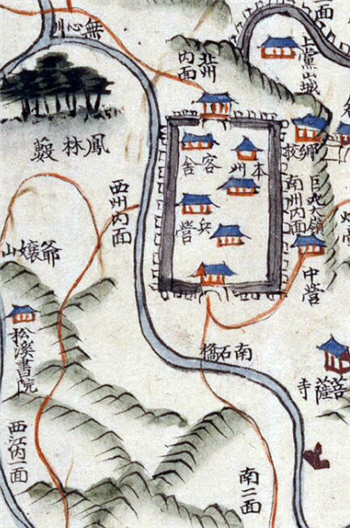 無心川
北州
內面
上黨山城
鳳林藪
客舍
本州
鄕校
南州內面
兵營
中營
西州內面
爺孃山
松溪書院
南石橋
菩薩寺
西江內一面
南二面